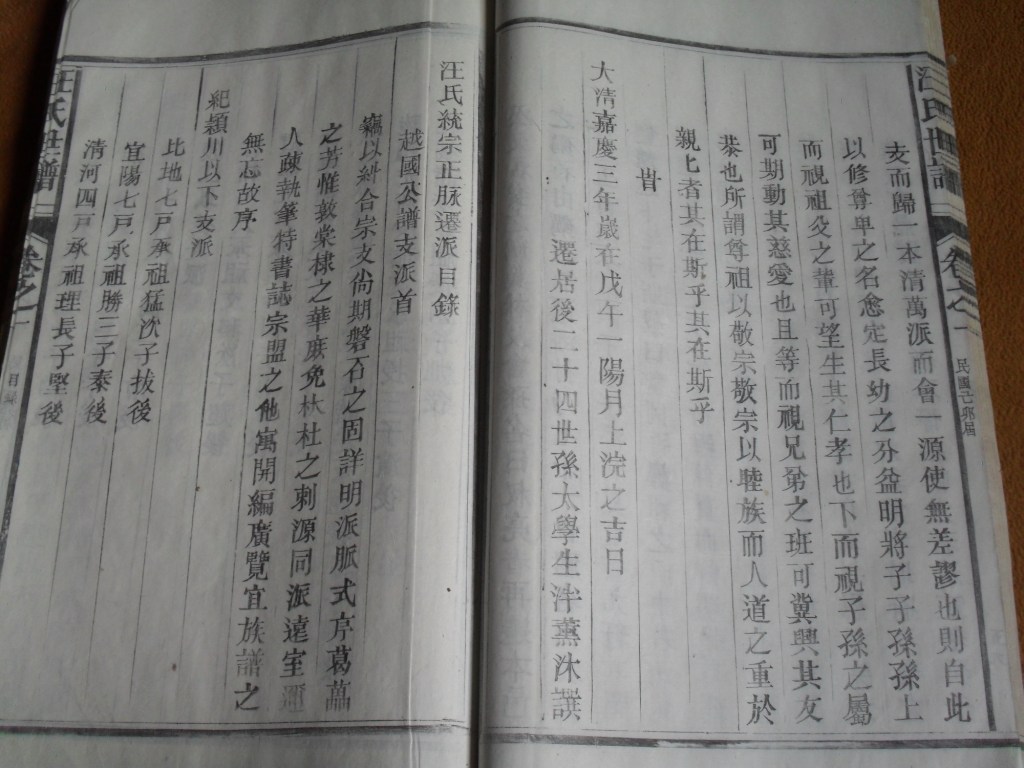 汪氏世譜
卷之一
民國己卯届
支而歸一本清萬派而會一源使無差謬也則自此
以修尊卑之名愈定長幼之分益明將子子孫孫上
而視祖父之輩可望生其仁孝也下而視子孫之屬
可期動其慈愛也且等而視兄弟之班可冀興其友
恭也所謂尊祖以敬宗敬宗以睦族而人道之重於
親匕者其在斯乎其在斯乎
旹
大清嘉慶三年歲在戊午一陽月上浣之吉日
遷居後二十四世孫太學生泮薰沐譔
汪氏統宗正脉遷派目錄
越國公譜支派首
竊以糾合宗支尚期磐石之固詳明派脈式庇葛藟
之芳惟敦棠棣之華庶免杕杜之刺源同派遠室邇
人疎執筆特書誌宗盟之他寓開編廣覽宜族譜之
無忘故序
紀潁川以下支派
比地七戸承祖猛次子拔後
宜陽七戸承祖勝三子泰後
清河四戸承祖理長子堅後
汪氏世譜
卷之一
目錄